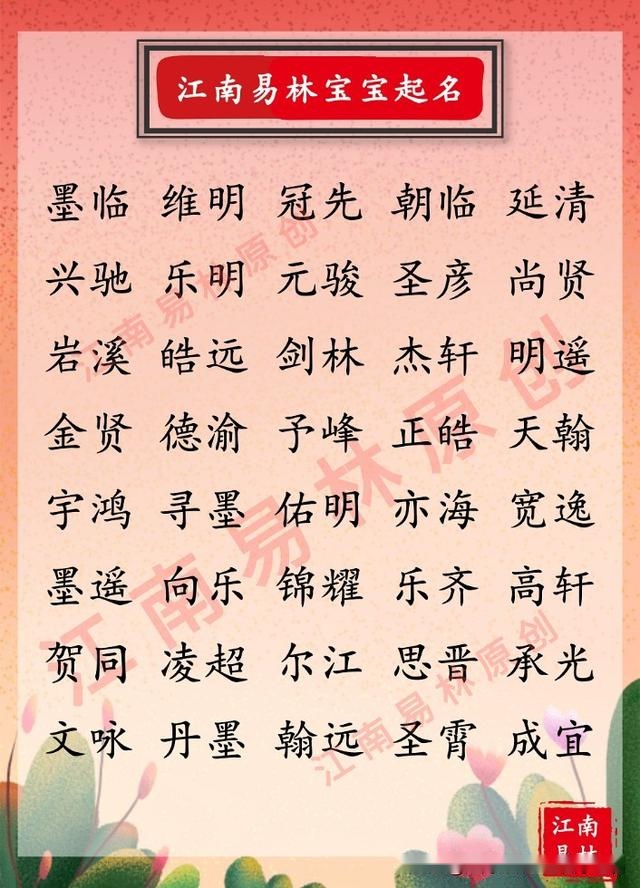 江南易林宝宝起名
墨临 维明 冠先 朝临 延清
兴驰 乐明 元骏 圣彦 尚贤
岩溪 皓远 剑林 杰轩 明遥
金贤 德渝 予峰 正皓 天翰
宇鸿 寻墨 佑明 亦海 宽逸
墨遥 向乐 锦耀 乐齐 高轩
贺同 凌超 尔江 思晋 承光
文咏 丹墨 翰远 圣霄 成宜
江南易林原创
江南易林原创
江南易林原创
江南
易林